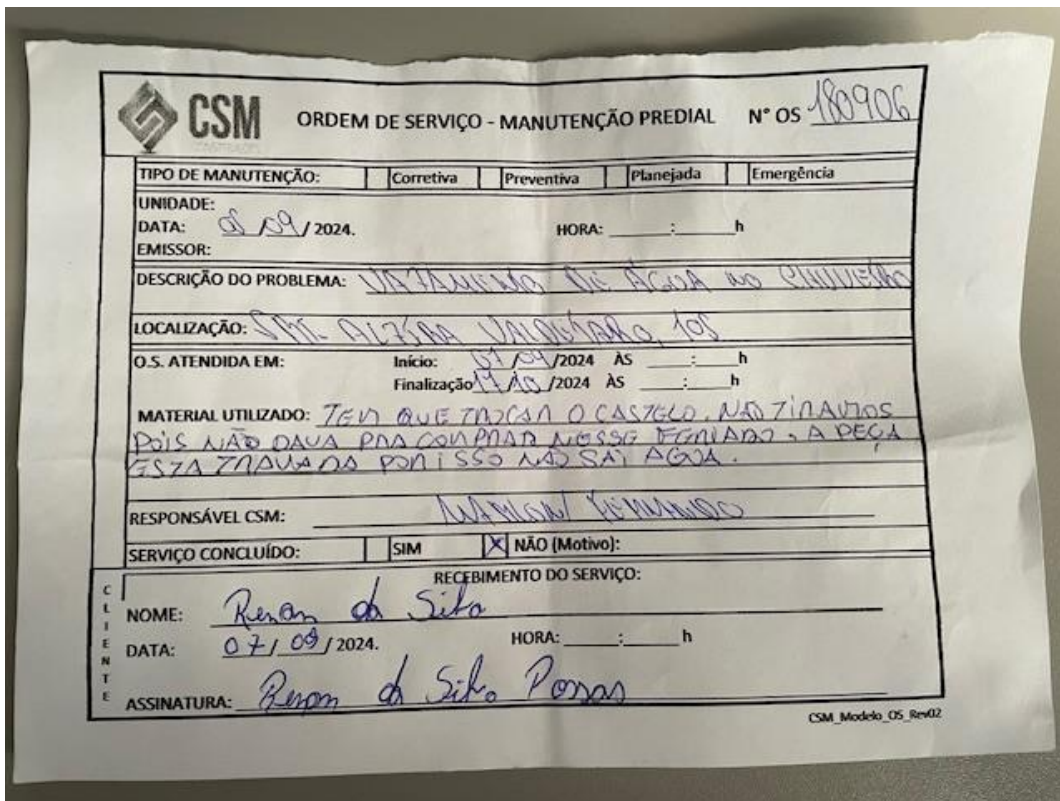 CSM
CONSTRUÇÕES
ORDEM DE SERVIÇO - MANUTENÇÃO PREDIAL N° OS 180906
TIPO DE MANUTENÇÃO: Corretiva Preventiva Planejada Emergência
UNIDADE:
DATA: 05/09/2024. HORA: ____:____h
EMISSOR:
DESCRIÇÃO DO PROBLEMA: VAZAMENTO DE ÁGUA NO CHUVEIRO
LOCALIZAÇÃO: ALZIRA
O.S. ATENDIDA EM: Início: 07/09/2024 ÀS ____:____h
Finalização /10/2024 ÀS ____:____h
MATERIAL UTILIZADO: TEM QUE TROCAR O CASTELO. NÃO TIRAMOS
POIS NÃO DAVA PRA COMPRAR NESSE FERIADO. A PEÇA
ESTA TRAVADA POR ISSO NÃO SAI AGUA.
RESPONSÁVEL CSM:
SERVIÇO CONCLUÍDO: SIM X NÃO (Motivo):
RECEBIMENTO DO SERVIÇO:
CLIENTE
NOME: Renan da Silva
DATA: 07/09/2024. HORA: ____:____h
ASSINATURA: Renan da Silva Possas
CSM_Modelo_OS_Rev02